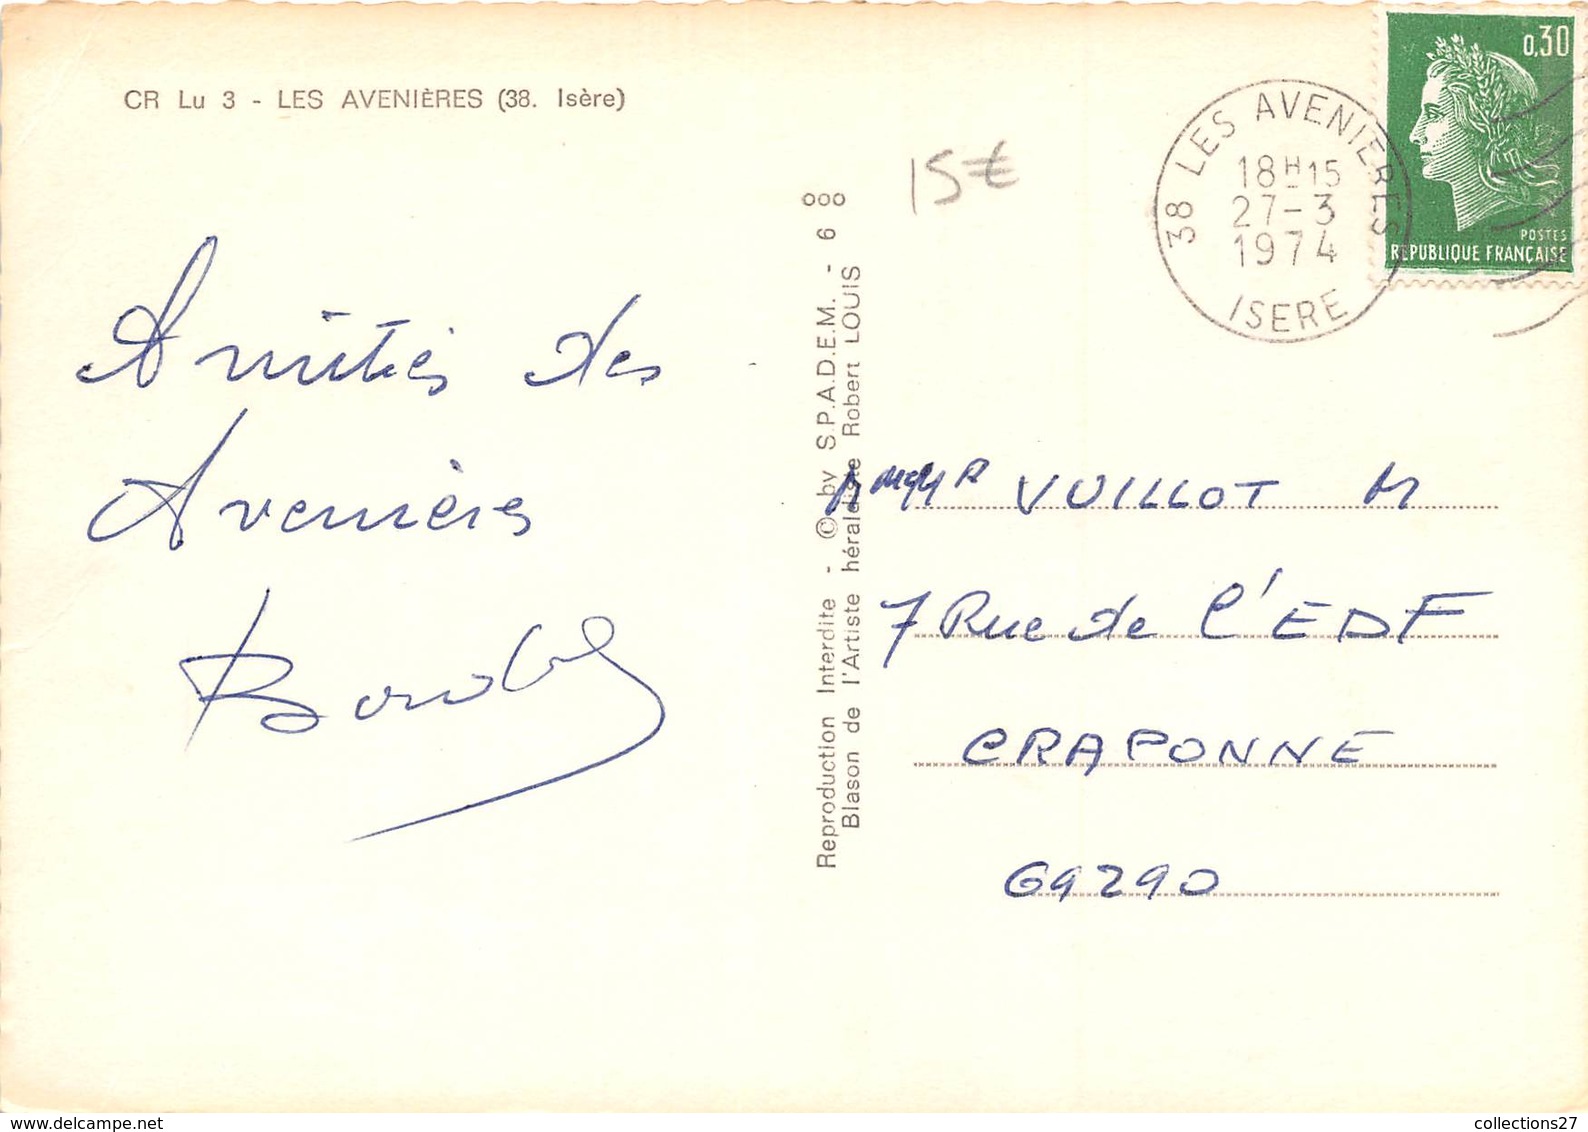 CR Lu 3 - LES AVENIÈRES (38. Isère)
15€
38 LES AVENIERES
18H15
27-3
1974
ISERE
0,30
POSTES
REPUBLIQUE FRANÇAISE
Amitiés des
Avenières
Reproduction Interdite - © by S.P.A.D.E.M. - 6 ooo
Blason de l'Artiste héraldiste Robert LOUIS
VUILLOT M
7 Rue de l'EDF
CRAPONNE
69290
collections27